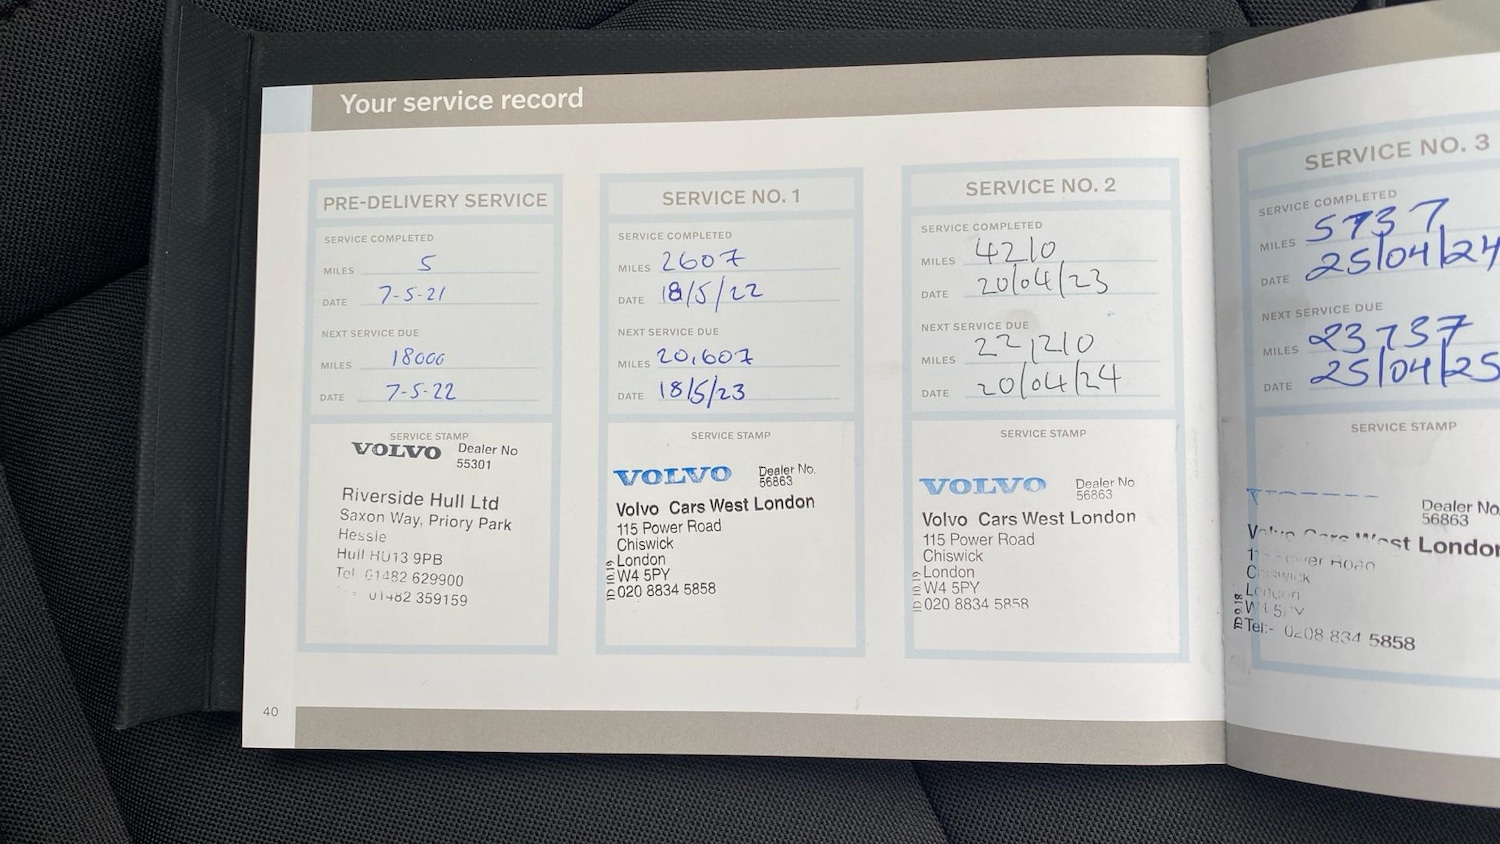 Your service record
PRE-DELIVERY SERVICE
SERVICE COMPLETED
MILES 5
DATE 7-5-21
NEXT SERVICE DUE
MILES 18000
DATE 7-5-22
SERVICE STAMP
VOLVO Dealer No
55301
Riverside Hull Ltd
Saxon Way, Priory Park
Hessle
Hull HU13 9PB
Tel 01482 629900
01482 359159
SERVICE NO. 1
SERVICE COMPLETED
MILES 2607
DATE 18/5/22
NEXT SERVICE DUE
MILES 20,607
DATE 18/5/23
SERVICE STAMP
VOLVO Dealer No.
56863
Volvo Cars West London
115 Power Road
Chiswick
London
W4 5PY
020 8834 5858
SERVICE NO. 2
SERVICE COMPLETED
MILES 4210
DATE 20/04/23
NEXT SERVICE DUE
MILES 22,210
DATE 20/04/24
SERVICE STAMP
VOLVO Dealer No
56863
Volvo Cars West London
115 Power Road
Chiswick
London
W4 5PY
020 8834 5858
SERVICE NO. 3
SERVICE COMPLETED
MILES 5737
DATE 25/04/24
NEXT SERVICE DUE
MILES 23,737
DATE 25/04/25
SERVICE STAMP
Dealer No
56863
Volvo Cars West London
Power Road
Chiswick
London
W4 5PY
Tel:- 0208 834 5858
40